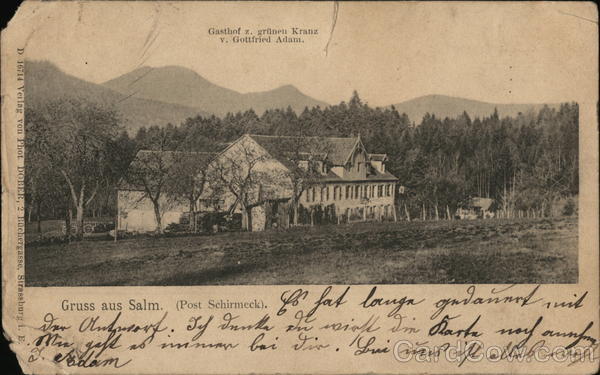 Gasthof z. grünen Kranz
v. Gottfried Adam.
D 16714 Verlag von Phot. DOBER, 2 Büchergasse, Strassburg i. E.
Gruss aus Salm. (Post Schirmeck).
Es hat lange gedauert mit
der Antwort. Ich denke du wirst die Karte noch annehmen
Wie geht es immer bei dir. Bei uns ist alles
J. Adam
CardCow.com